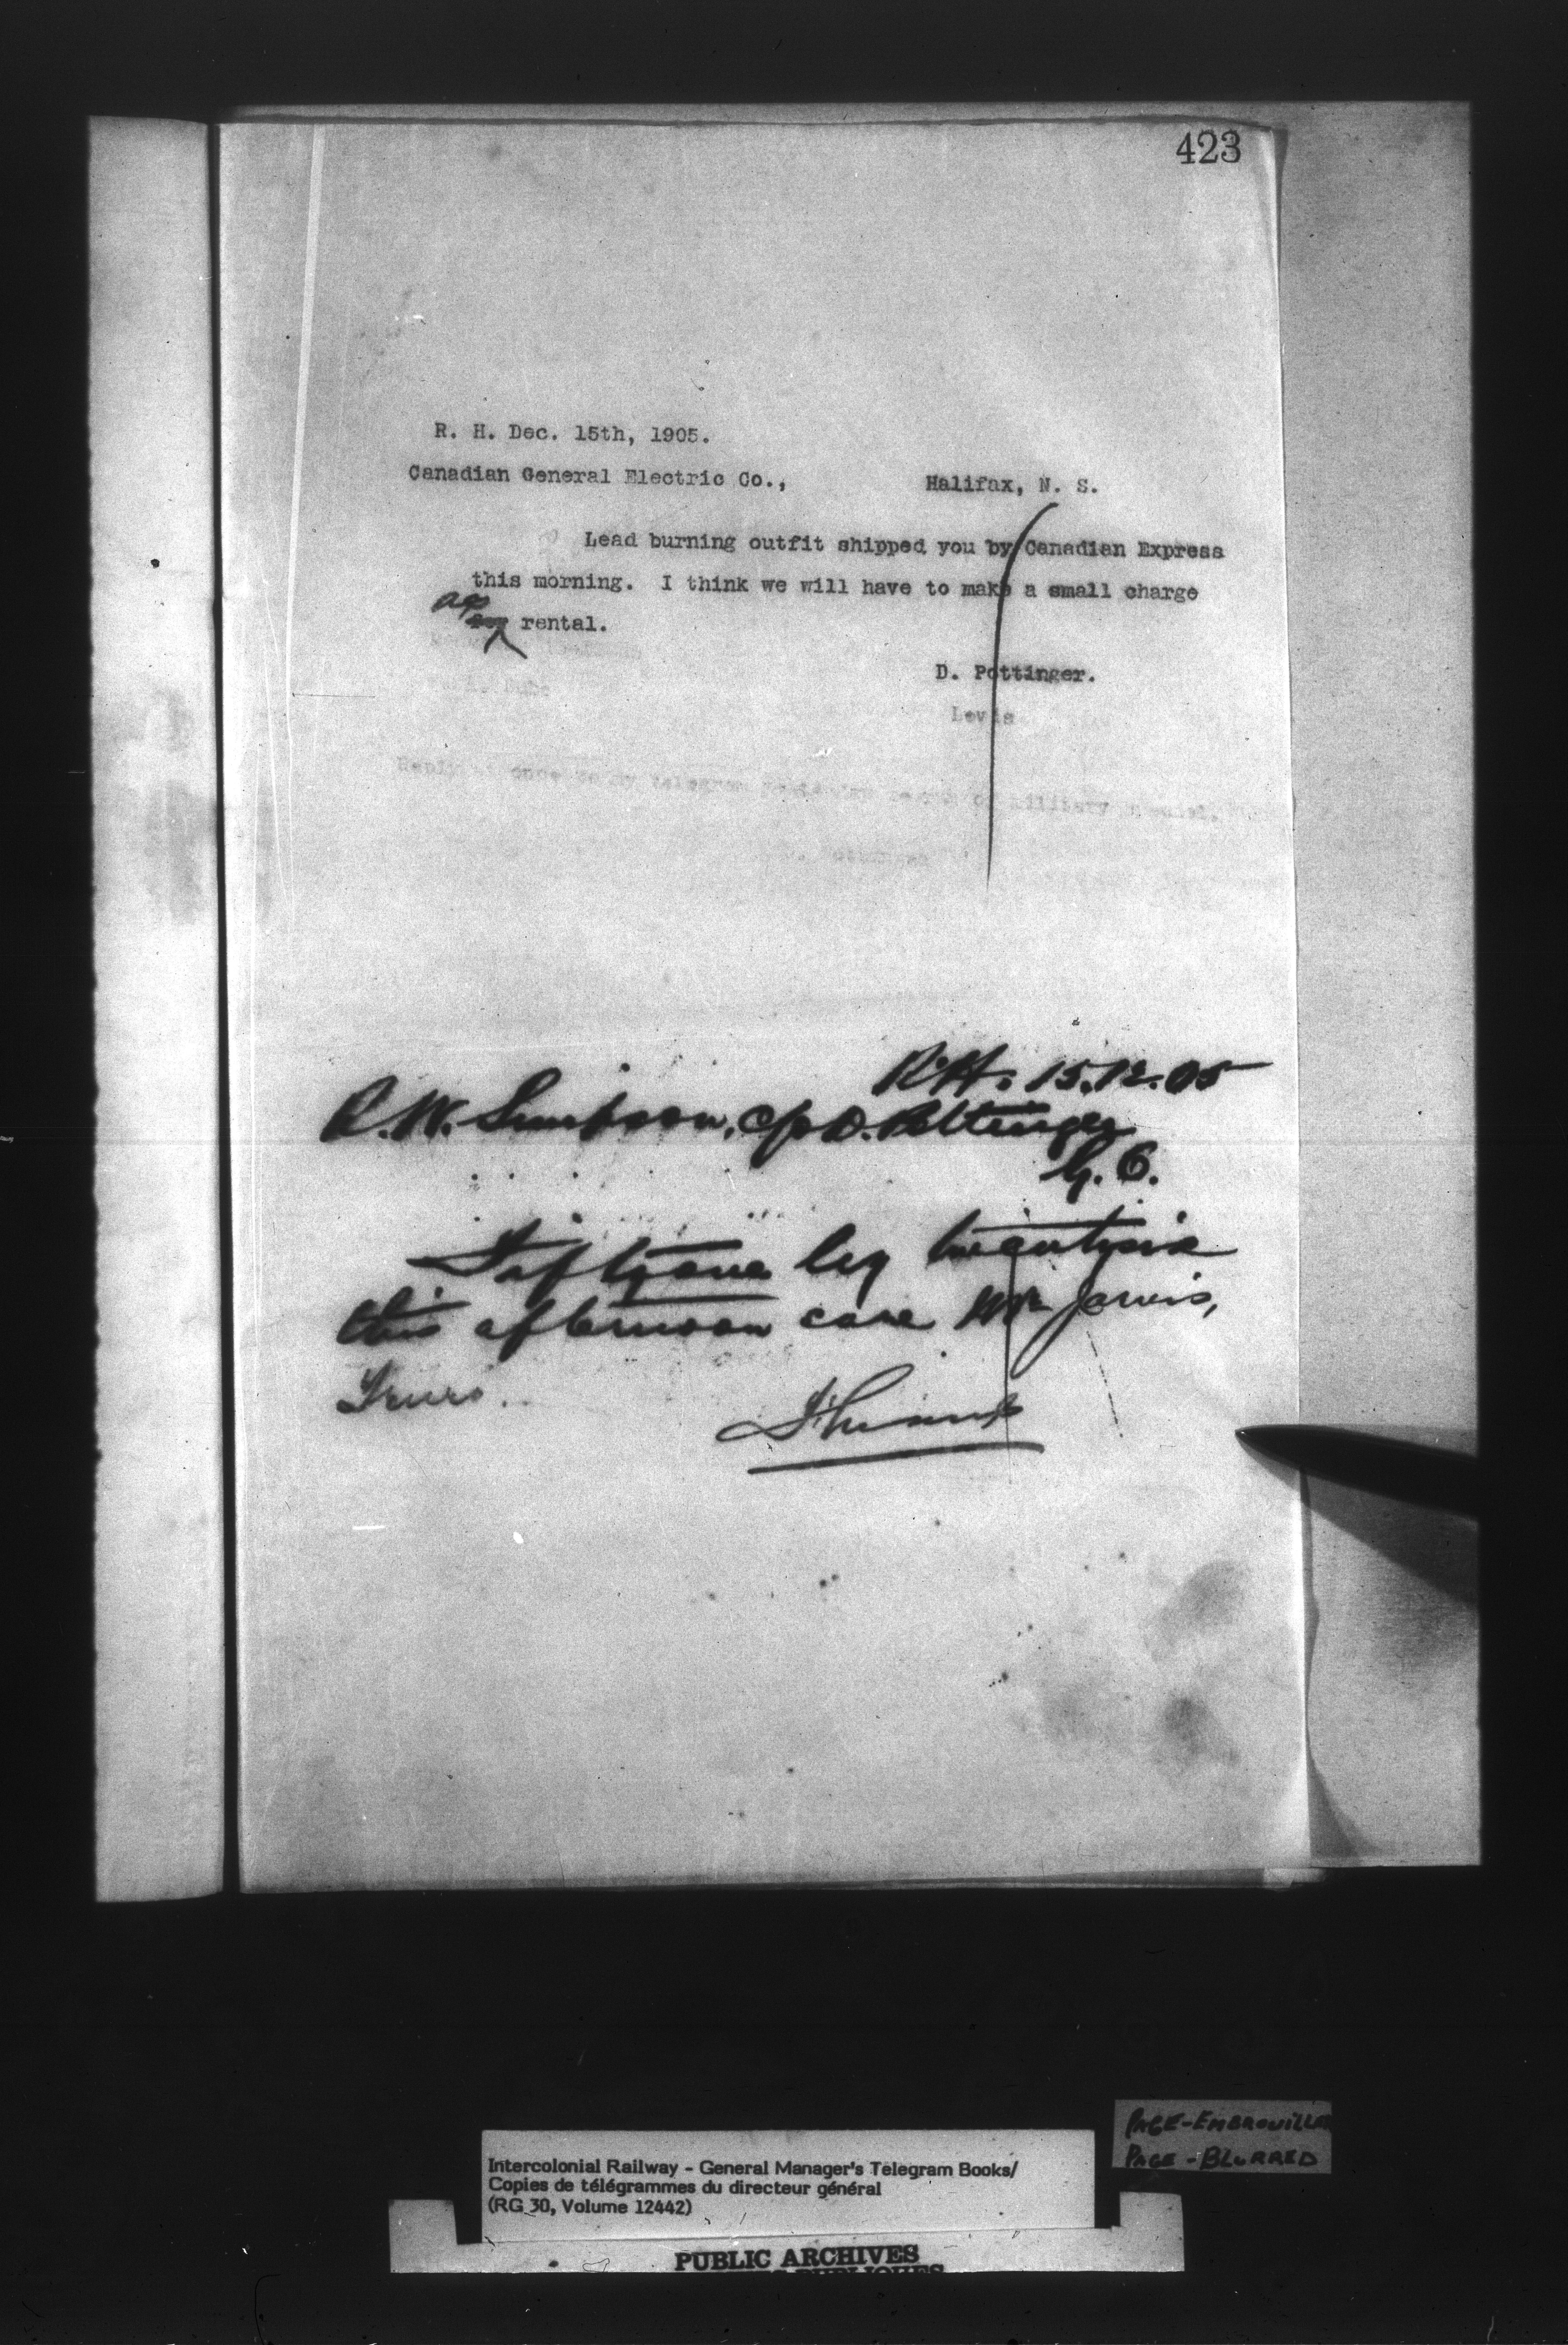 423
R. H. Dec. 15th, 1905.
Canadian General Electric Co., Halifax, N. S.
Lead burning outfit shipped you by Canadian Express
this morning. I think we will have to make a small charge
as
for rental.
D. Pottinger.
Levis
Reply at once to my telegram military
Pottinger
R.H. 15.12.05
R.W. Simpson, c/o D. Pottinger
G. O.
Fiftyone by twentysix
this afternoon care Mr Jarvis,
Truro.
PAGE-EMBROUILLÉE
PAGE-BLURRED
Intercolonial Railway - General Manager's Telegram Books/
Copies de télégrammes du directeur général
(RG 30, Volume 12442)
PUBLIC ARCHIVES